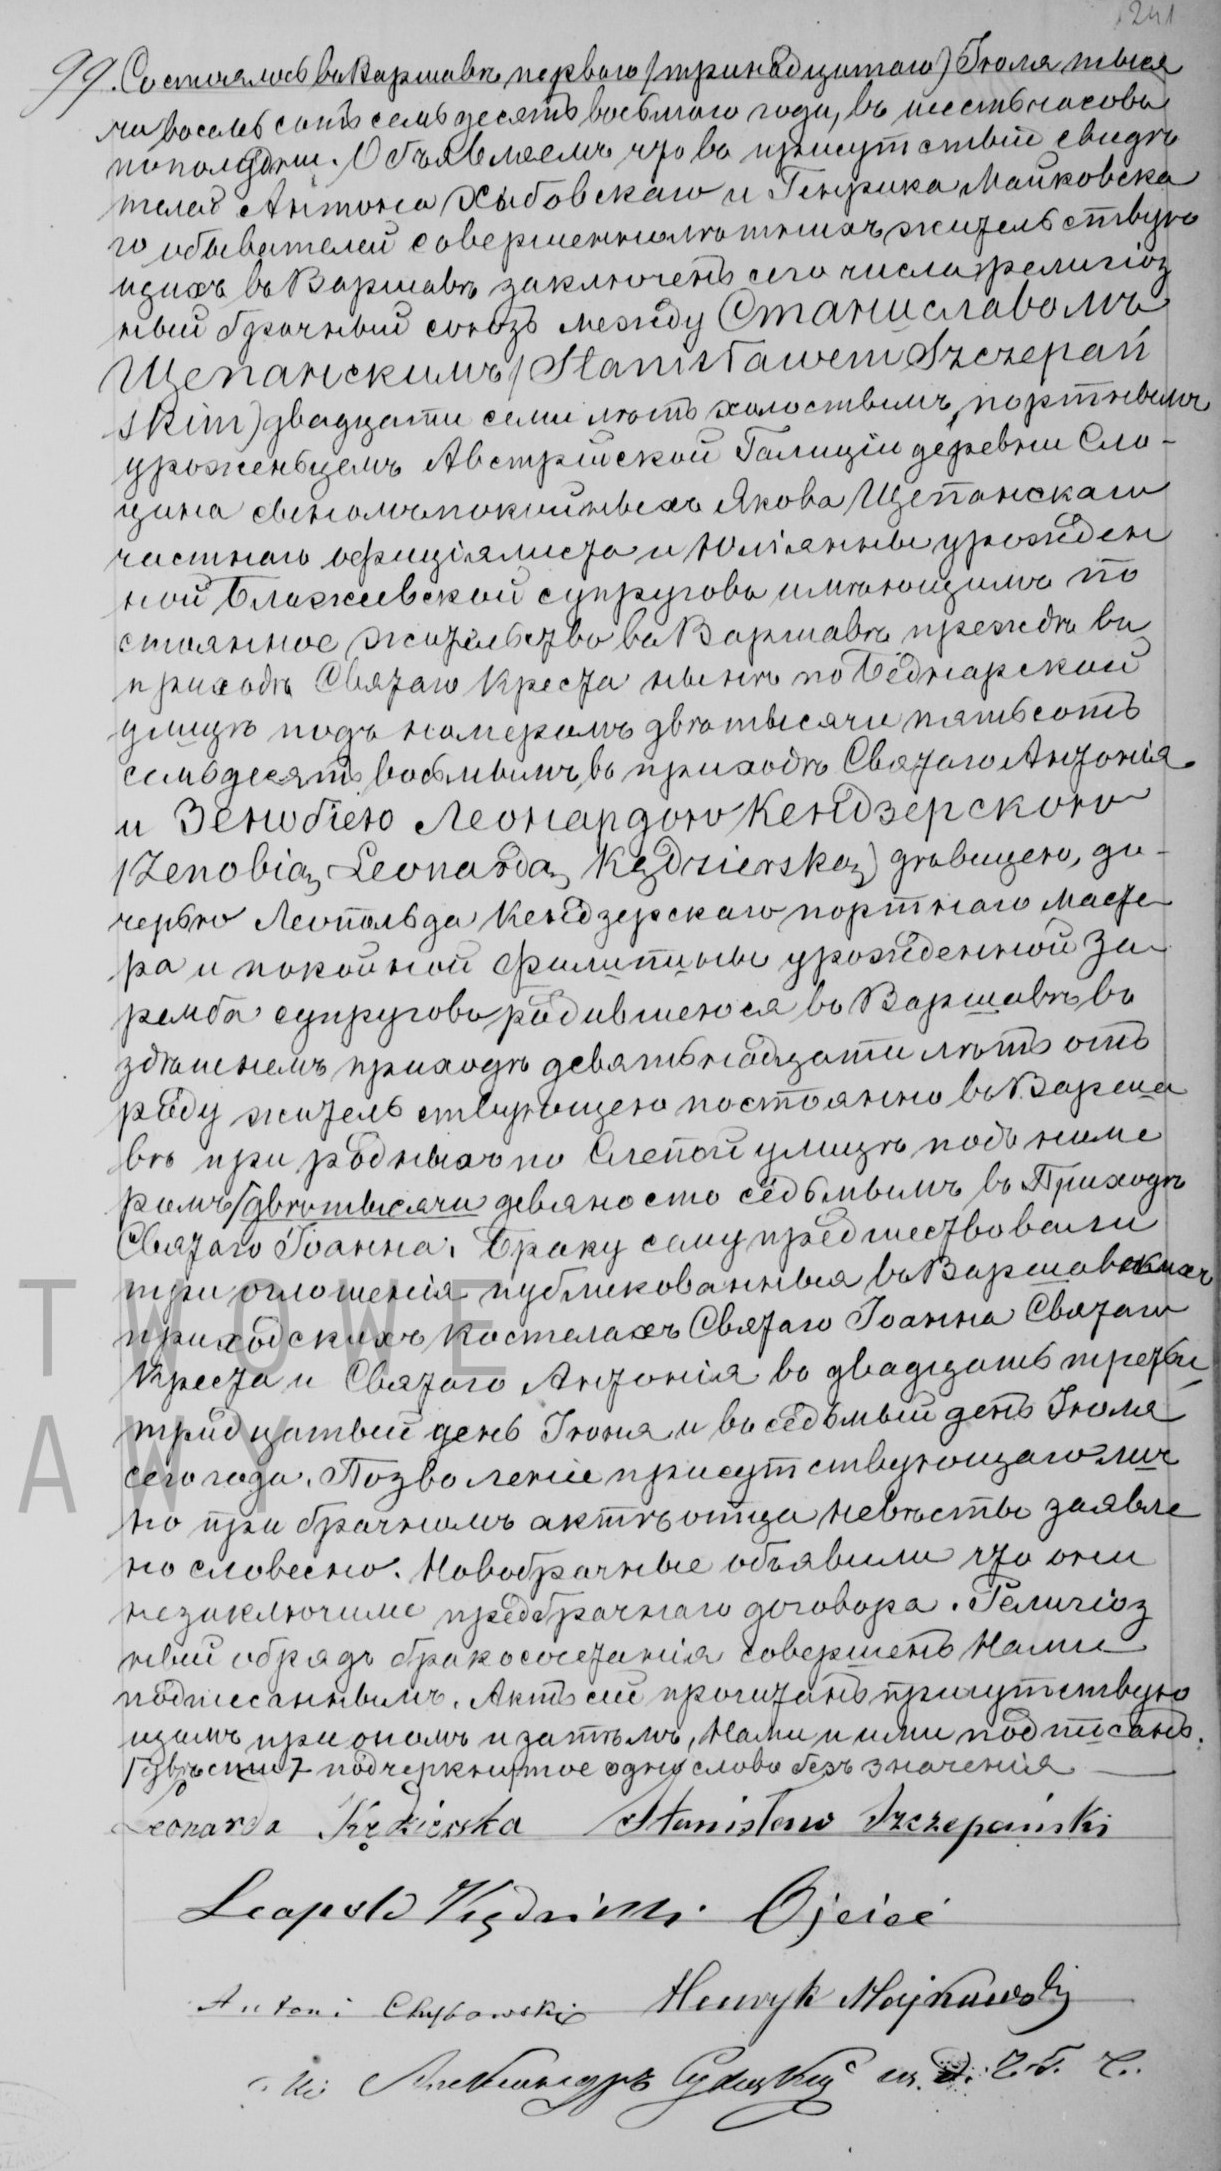 241
99. Состоялось въ Варшавѣ перваго (тринадцатаго) Іюля тыся
ча восемь сотъ семьдесятъ восьмаго года, въ шесть часовъ
пополудни. Объявляемъ что въ присутствіи свидѣ
телей Антона Хыбовскаго и Генрика Майковска
го обывателей совершеннолѣтнихъ жительствую
щихъ въ Варшавѣ заключенъ сего числа религіоз
ный брачный союзъ между Станиславомъ
Щепанскимъ (Stanisławem Szczepań
skim) двадцати семи лѣтъ холостымъ, портнымъ
уроженьцемъ Австрійской Галиціи деревни Сло-
цина сыномъ покойныхъ Якова Щепанскаго
частнаго офиціялиста и Юліянны урожден
ной Блажевской супруговъ имѣющимъ по
стоянное жительство въ Варшавѣ прежде въ
приходѣ Святаго Креста нынѣ по Беднарской
улицѣ подъ номеромъ двѣ тысячи пятьсотъ
семьдесятъ восьмымъ, въ приходѣ Святаго Антонія
и Зенобіею Леонардою Кендзерскою
(Zenobią Leonardą Kędzierską) дѣвицею, до-
черью Леопольда Кендзерскаго портнаго масте
ра и покойной Филипины урожденной За
ремба супруговъ родившеюся въ Варшавѣ въ
здѣшнемъ приходѣ девятьнадцати лѣтъ отъ
роду жительствующею постоянно въ Варша
вѣ при родныхъ по Слепой улицѣ подъ номе
ромъ (двѣ тысячи девяносто седьмымъ въ Приходѣ
Святаго Іоанна. Браку сему предшествовали
три оглошенія публикованныя въ Варшавскихъ
приходскихъ костелахъ Святаго Іоанна Святаго
Креста и Святаго Антонія въ двадцать третьи
тридцатый день Іюня и въ седьмый день Іюля
сего года. Позволеніе присутствующаго лич
но при брачномъ актѣ отца невѣсты заявле
но словесно. Новобрачные объявили что они
незаключили предбрачнаго договора. Религіоз
ный обрядъ бракосочетанія совершенъ Нами
подписаннымъ. Актъ сей прочитанъ присутствую
щимъ при ономъ и затѣмъ, Нами и ими подписанъ.
подчеркнутое одно слово безъ значенія
Leonarda Kędzierska Stanisław Szczepański
Leopold Ojciec
Antoni Chybowski Henryk Majkowski